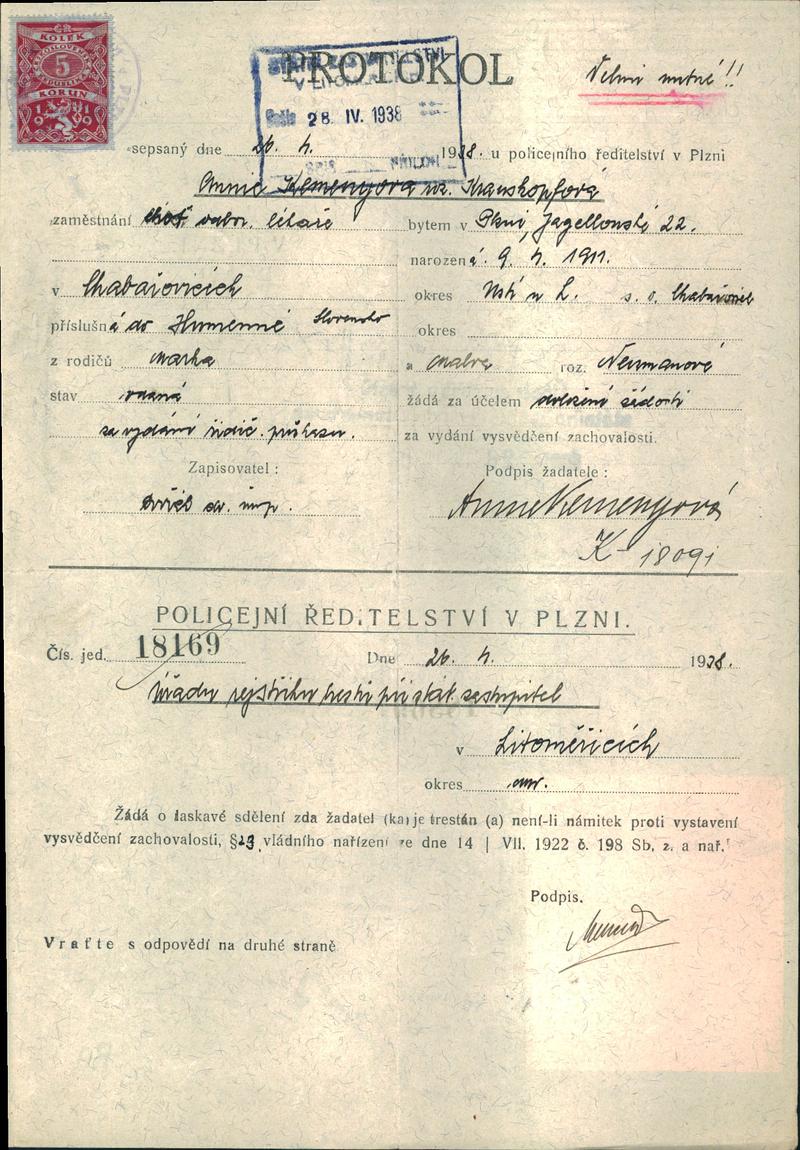 ČR
KOLEK
5
KORUN
1919
PROTOKOL
28. IV. 1938
Velmi nutné!!
sepsaný dne 26. 4. 1938. u policejního ředitelství v Plzni
Annie Kemenyová roz. Krauskopfová
zaměstnání choť lékaře
bytem v Plzni, Jagellonská 22.
narozená 9. 4. 1911.
v Chabařovicích
okres Ústí n L. s. o. Chabařovice
příslušná do Humenné Slovensko
okres
z rodičů Marka
a Malvy roz. Neumanové
stav vdaná
žádá za účelem doložení žádosti
za vydání řidič. průkazu.
za vydání vysvědčení zachovalosti.
Zapisovatel:
Podpis žadatele:
Anna Kemenyová
K - 18091
POLICEJNÍ ŘEDITELSTVÍ V PLZNI.
Čís. jed. 18169
Dne 26. 4. 1938.
Úřadu rejstříku trestů při stát. zastupitel
v Litoměřicích
okres
Žádá o laskavé sdělení zda žadatel (ka) je trestán (a) není-li námitek proti vystavení
vysvědčení zachovalosti, § vládního nařízení ze dne 14 | VII. 1922 č. 198 Sb. z. a nař.
Podpis.
Vraťte s odpovědí na druhé straně